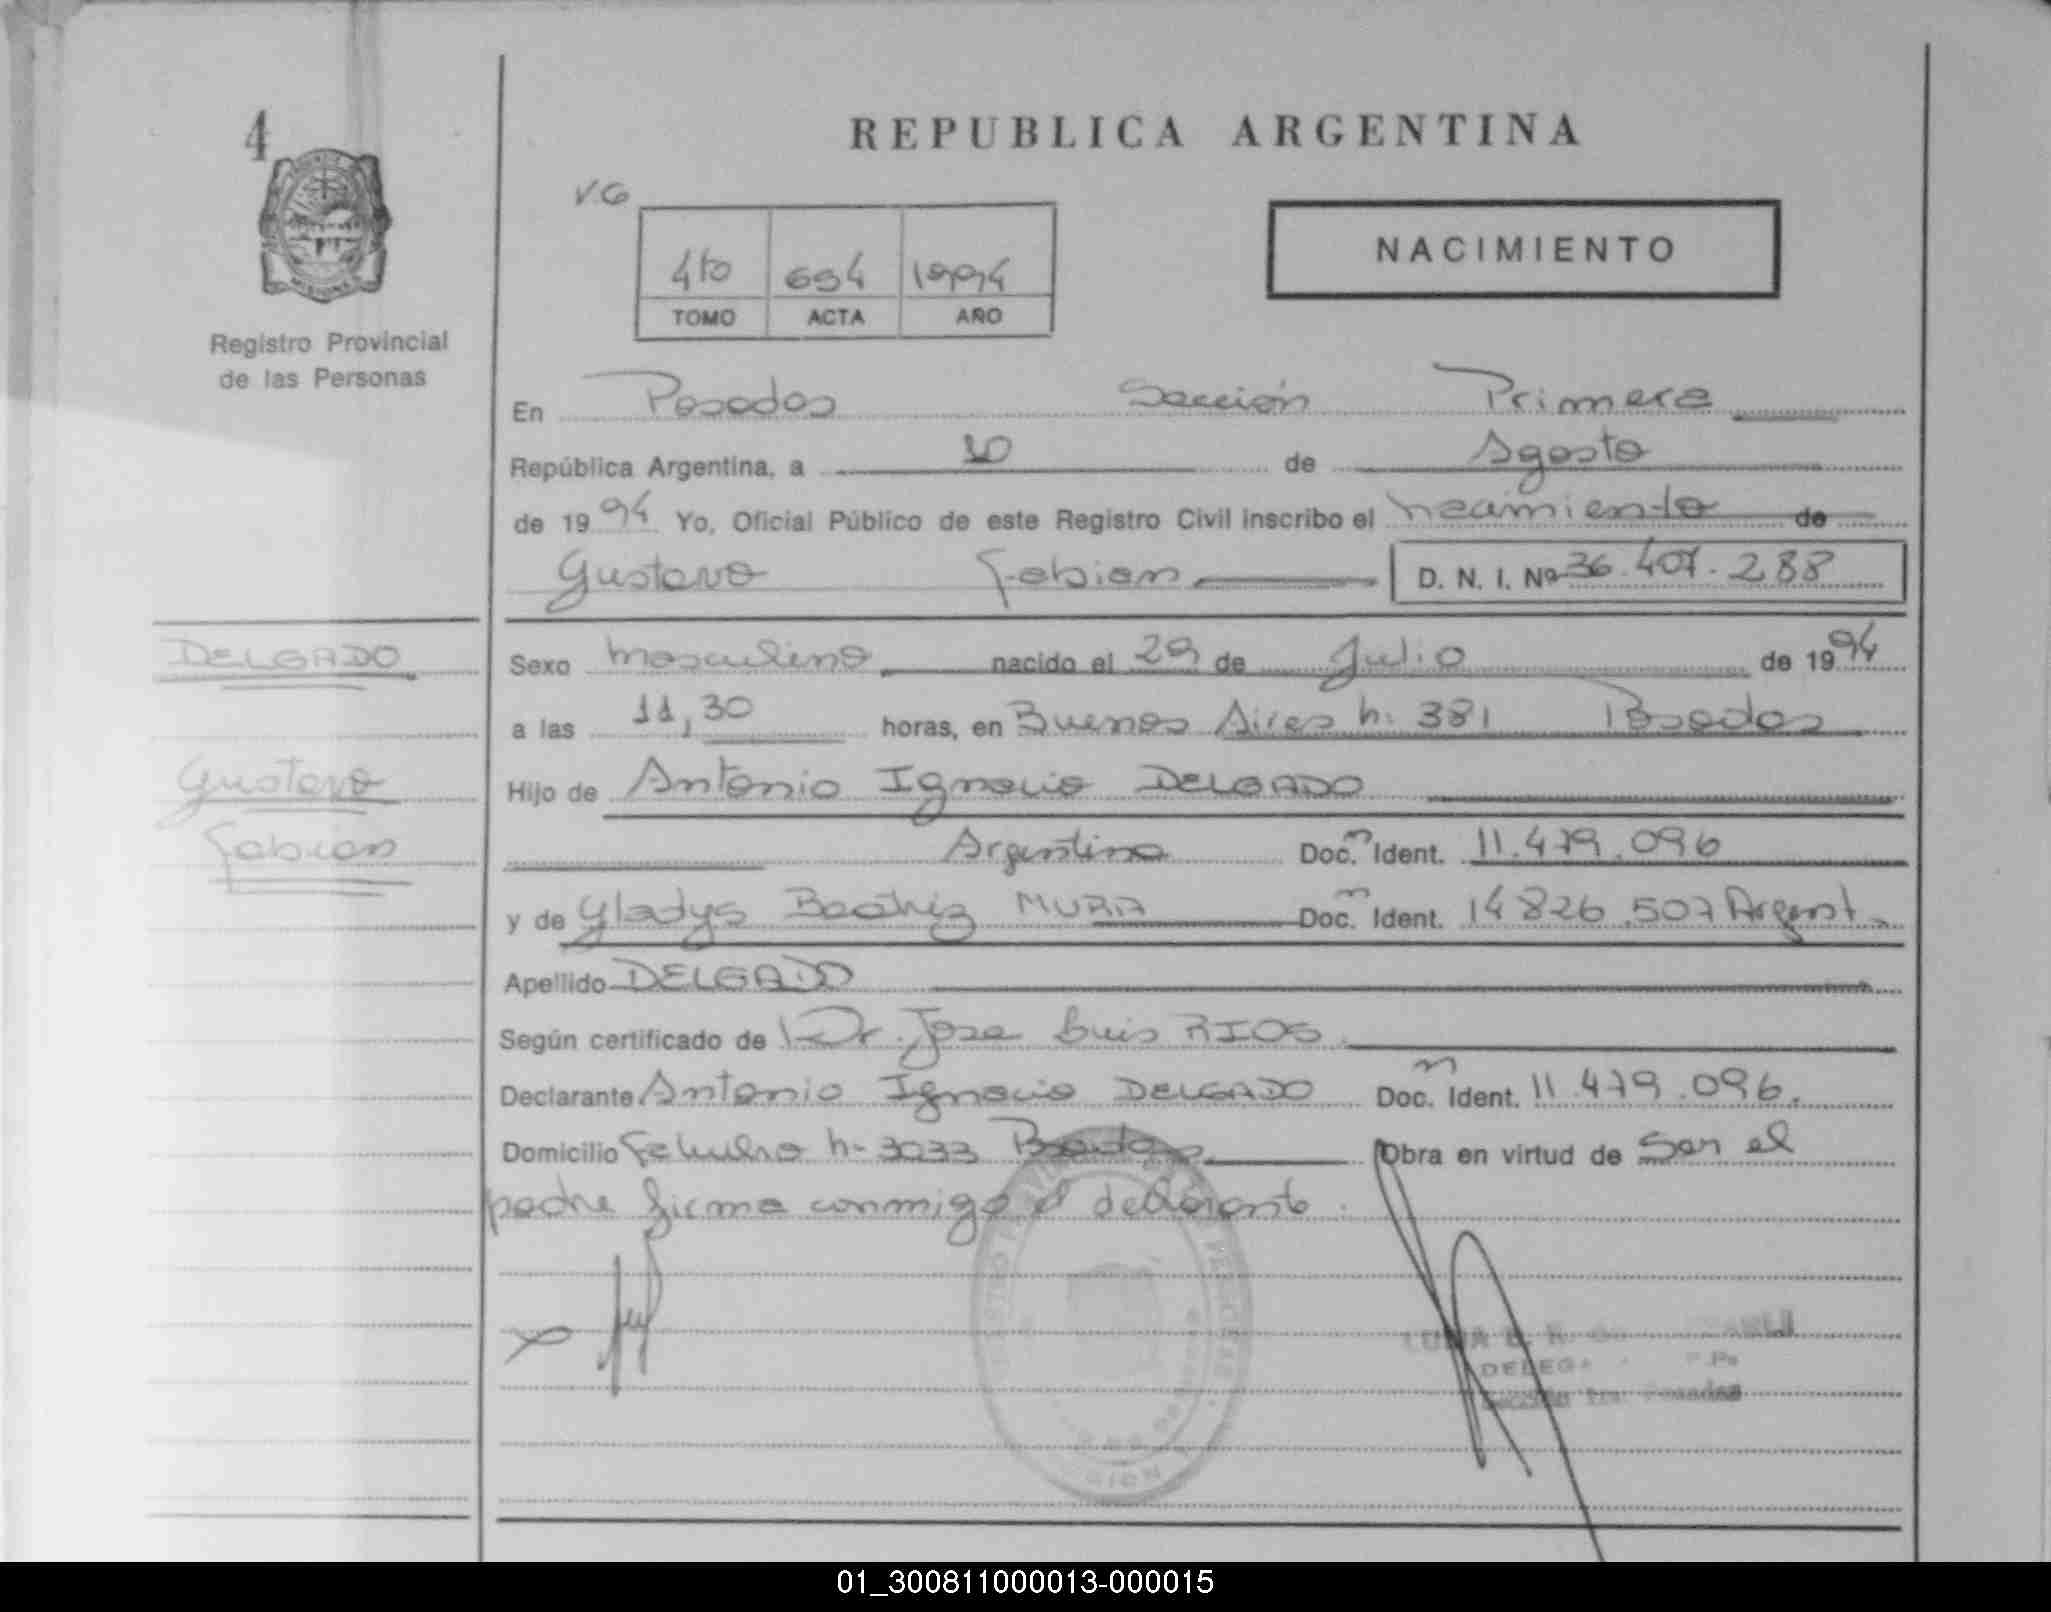 4
REPUBLICA ARGENTINA
V.G
NACIMIENTO
4to 694 1994
TOMO ACTA AÑO
Registro Provincial
de las Personas
En Posadas Sección Primera
República Argentina, a 10 de Agosto
de 1994 Yo, Oficial Público de este Registro Civil inscribo el nacimiento de
Gustavo Fabian D. N. I. Nº 36.407.288
DELGADO
Sexo masculino nacido el 29 de Julio de 1994
a las 11,30 horas, en Buenos Aires n. 381 Posadas
Gustavo
Hijo de Antonio Ignacio DELGADO
Fabian
Argentino Doc. m Ident. 11.479.096
y de Gladys Beatriz MURA Doc. m Ident. 14826.507 Argent.
Apellido DELGADO
Según certificado de Dr. Jose Luis RIOS
Declarante Antonio Ignacio DELGADO Doc. m Ident. 11.479.096.
Domicilio n- 3033 Posadas Obra en virtud de Ser el
padre firma conmigo el declarante.
01_300811000013-000015